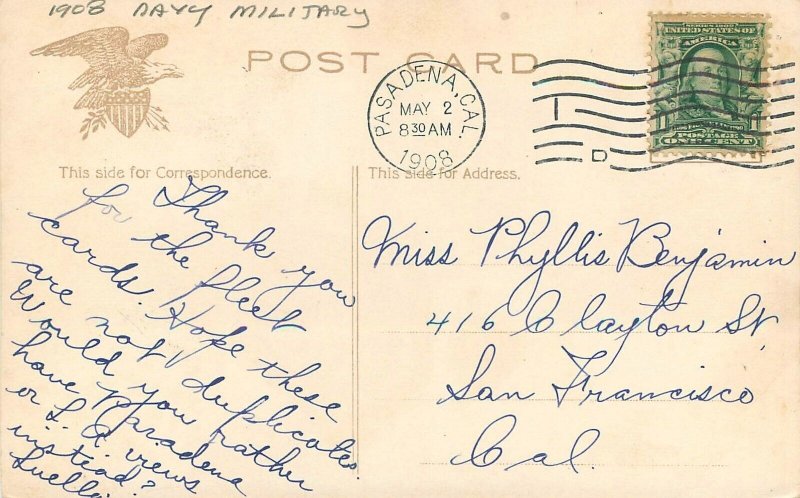 1908 NAVY MILITARY
POST CARD
PASADENA, CAL.
MAY 2
8 30 AM
1908
SERIES 1902
UNITED STATES OF
AMERICA
POSTAGE
ONE CENT
D
This side for Correspondence.
Thank you
for the fleet
cards. Hope these
are not duplicates
Would you rather
have Pasadena
or L. A. views
instead?
Luella.
This side for Address.
Miss Phyllis Benjamin
416 Clayton St.
San Francisco
Cal.